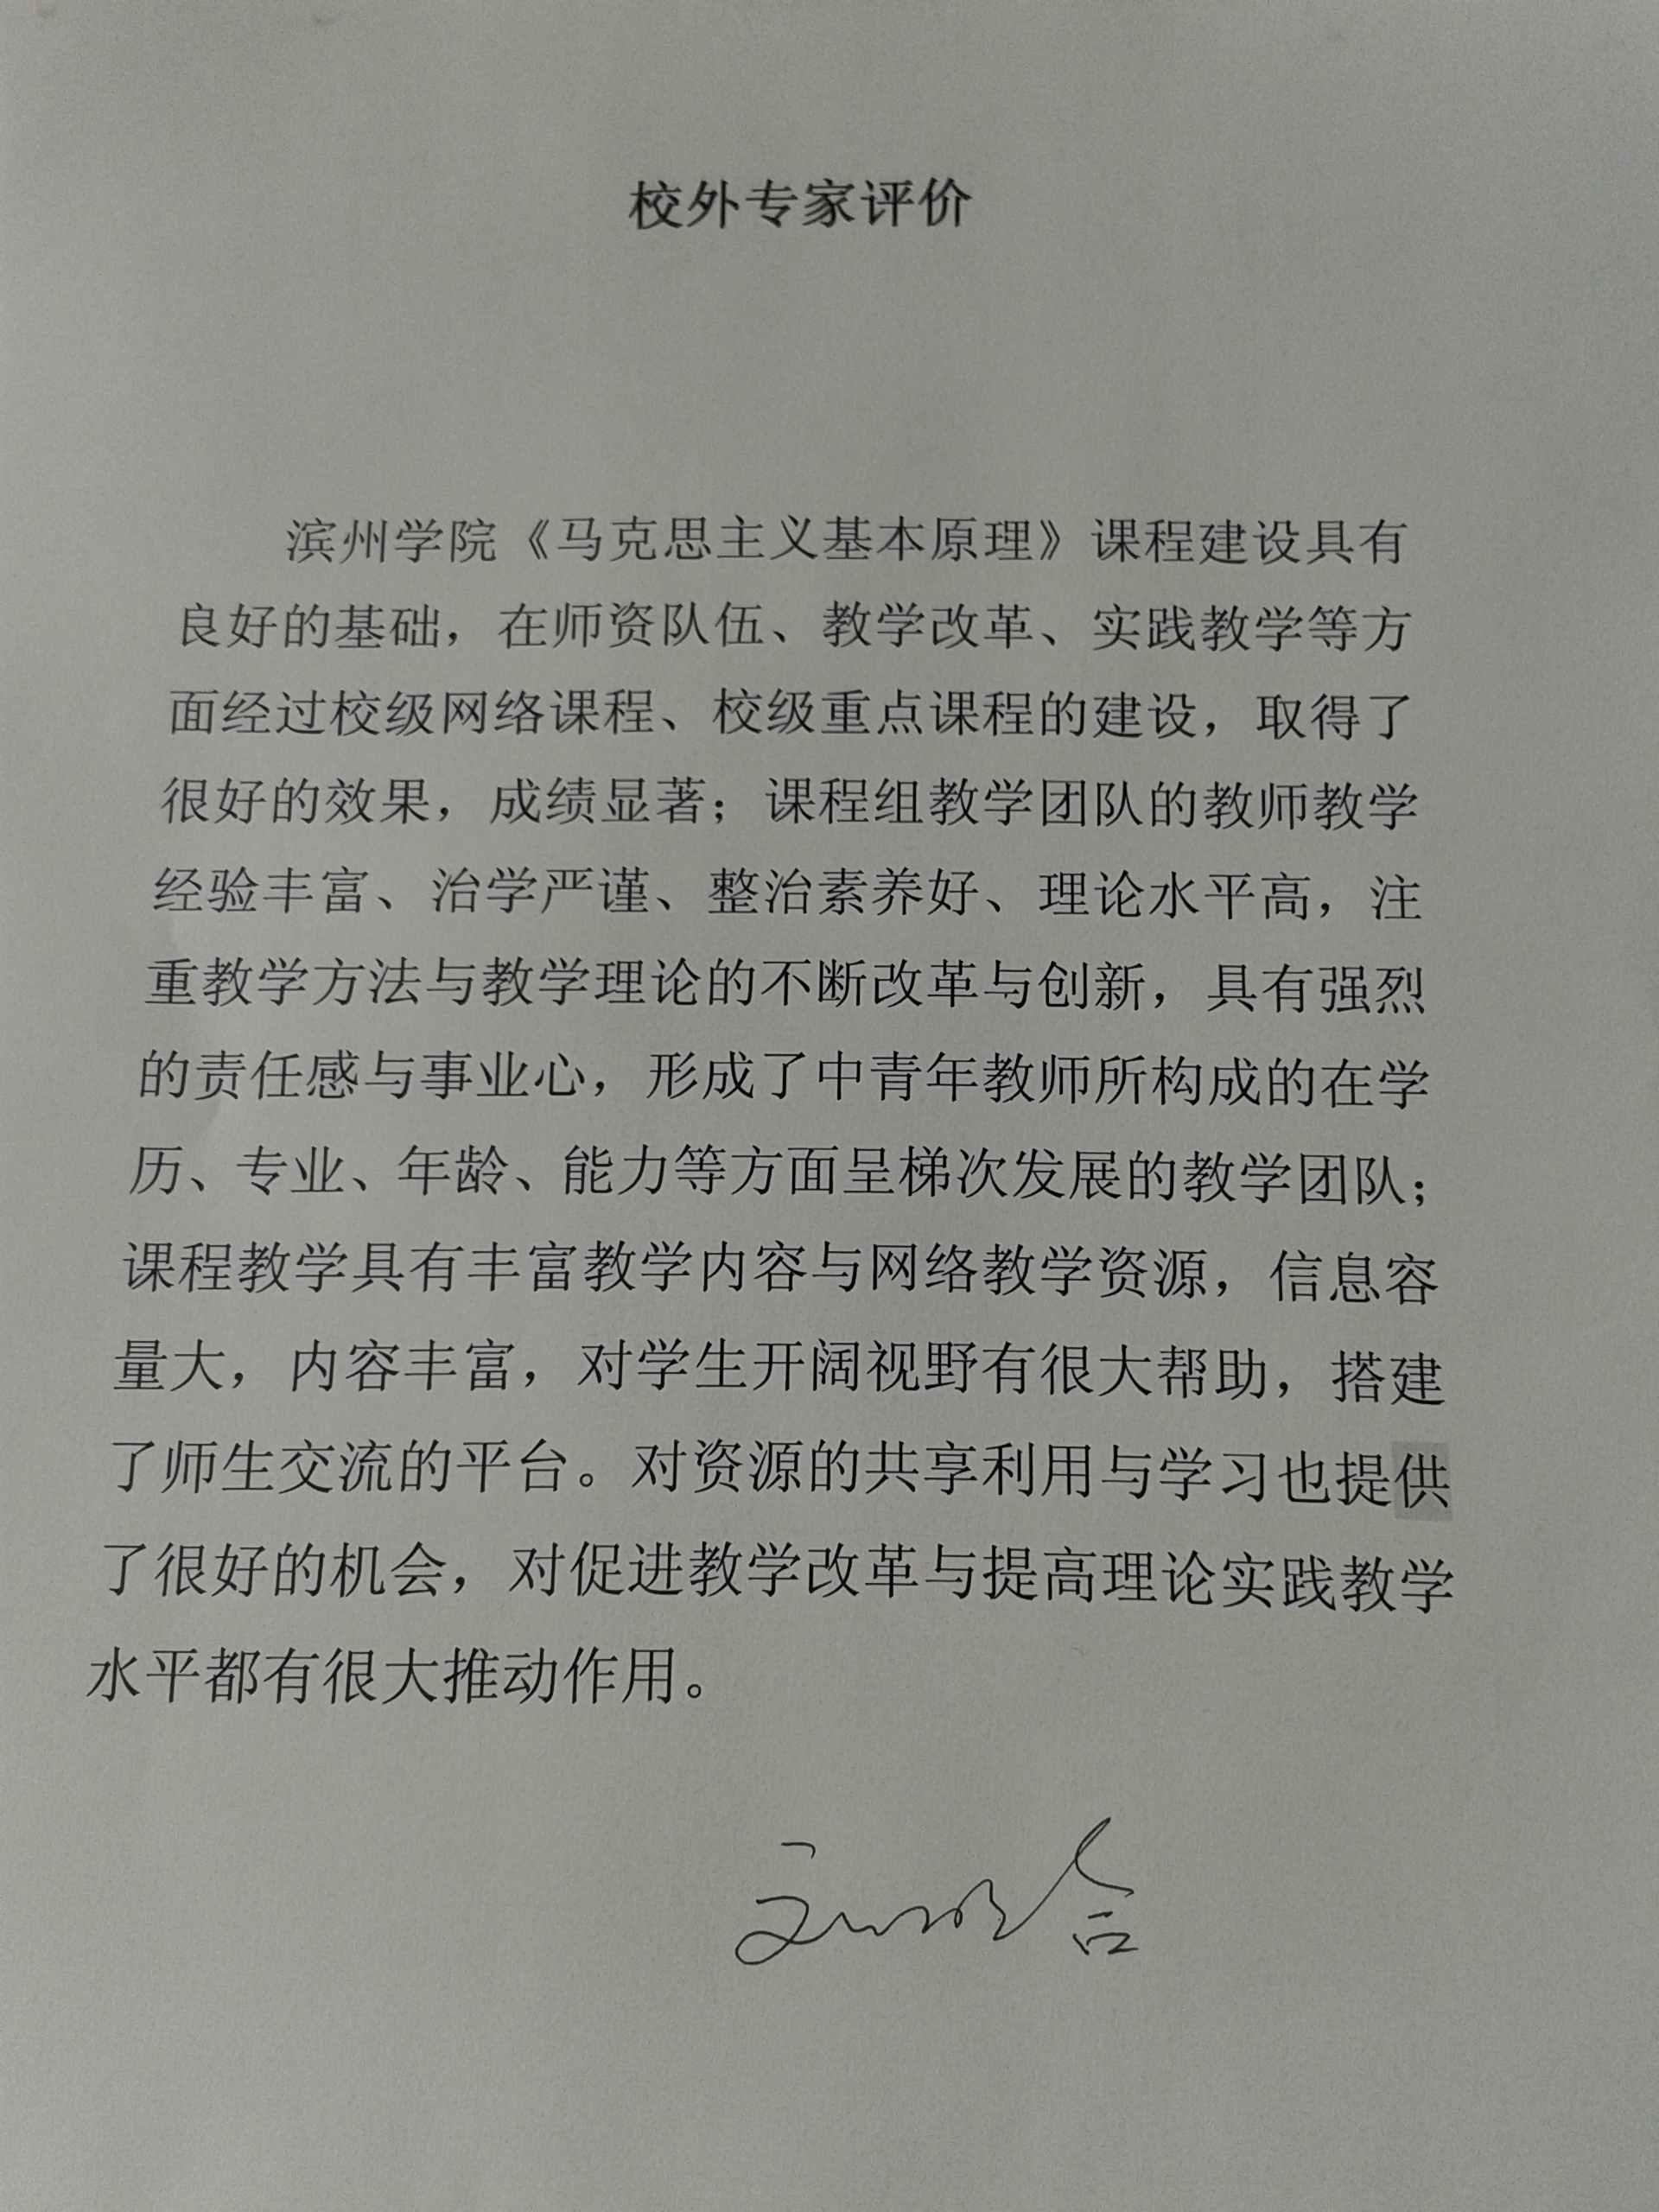 校外专家评价
滨州学院《马克思主义基本原理》课程建设具有
良好的基础，在师资队伍、教学改革、实践教学等方
面经过校级网络课程、校级重点课程的建设，取得了
很好的效果，成绩显著；课程组教学团队的教师教学
经验丰富、治学严谨、整治素养好、理论水平高，注
重教学方法与教学理论的不断改革与创新，具有强烈
的责任感与事业心，形成了中青年教师所构成的在学
历、专业、年龄、能力等方面呈梯次发展的教学团队；
课程教学具有丰富教学内容与网络教学资源，信息容
量大，内容丰富，对学生开阔视野有很大帮助，搭建
了师生交流的平台。对资源的共享利用与学习也提供
了很好的机会，对促进教学改革与提高理论实践教学
水平都有很大推动作用。